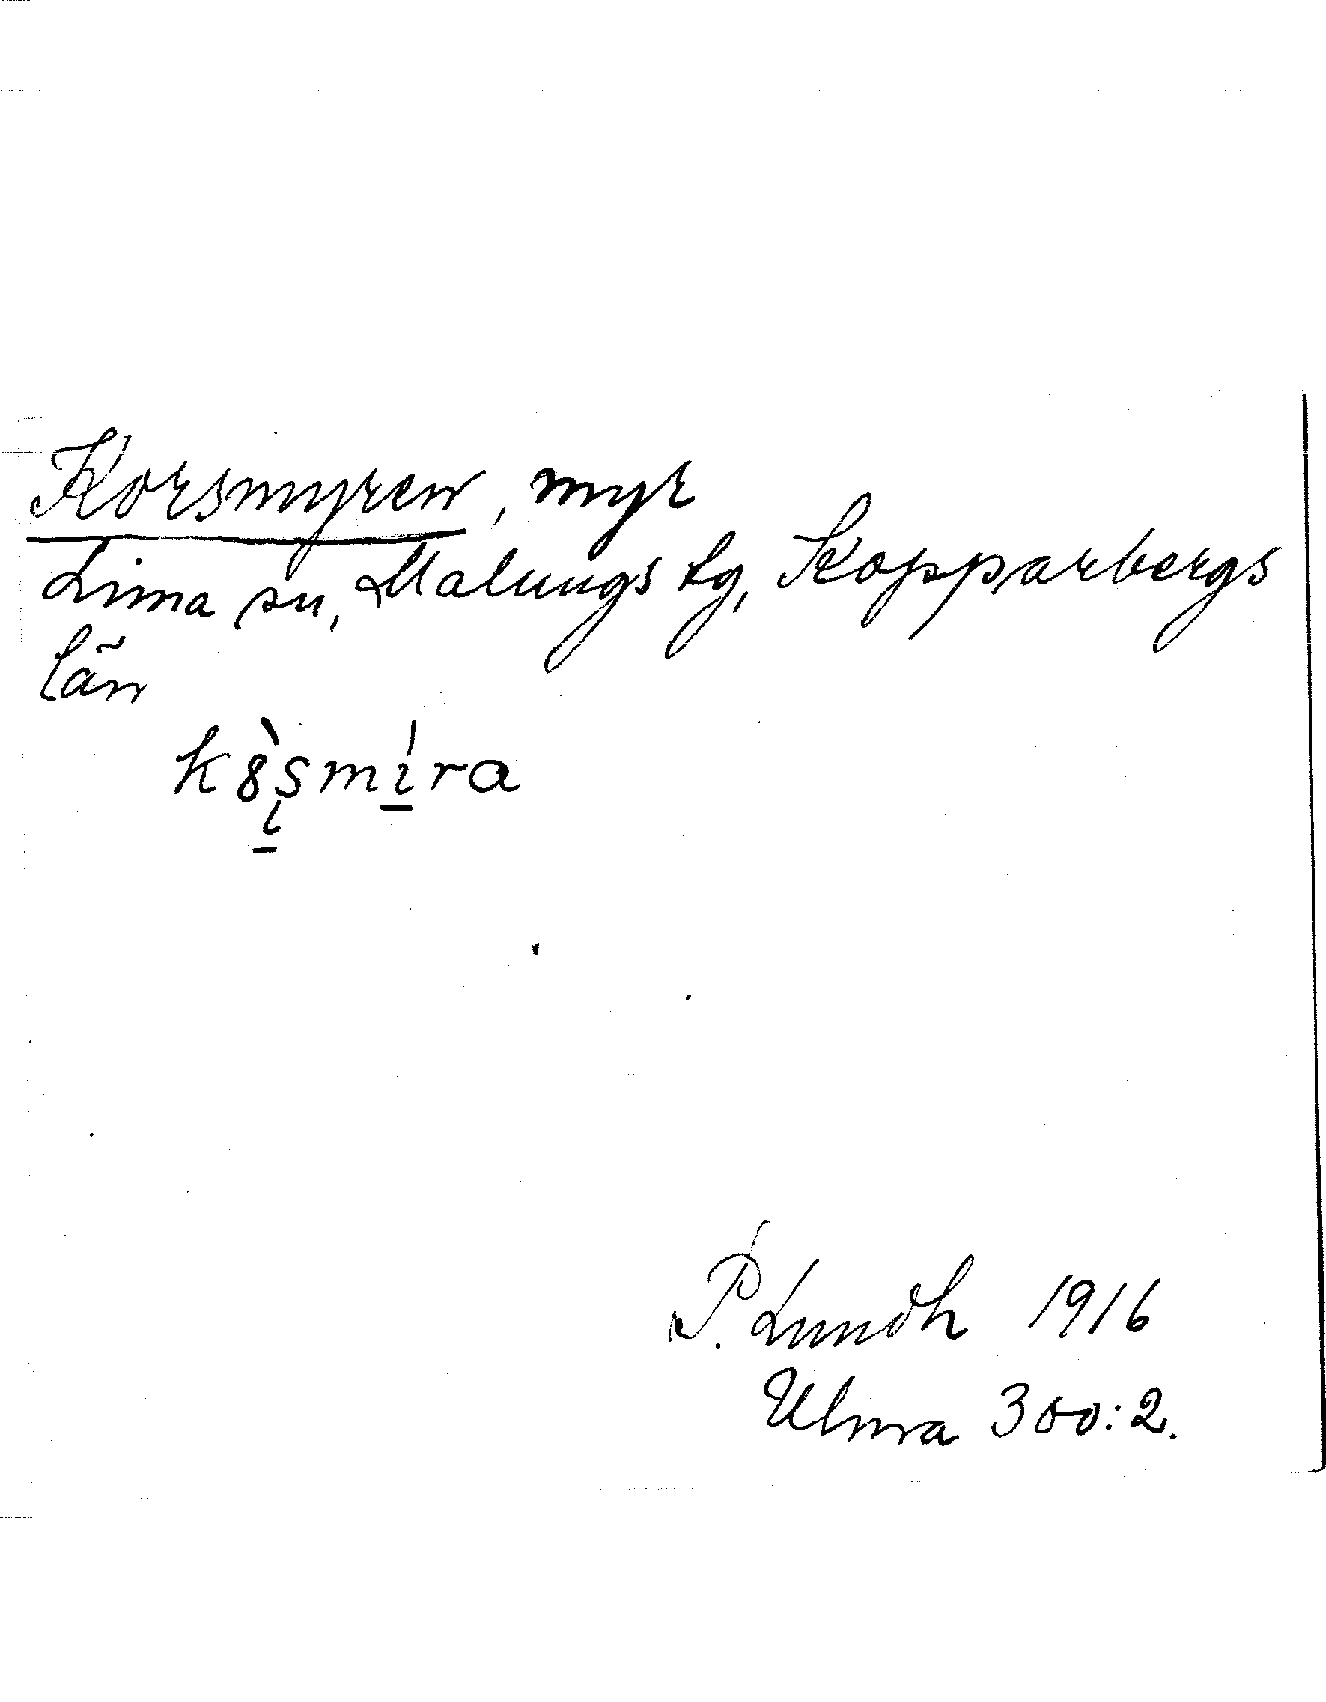 Korsmyren, myr
Lima sn, Malungs tg, Kopparbergs
län
k8̀s̨mi̱ra
P. Lundh 1916
Ulma 300:2.